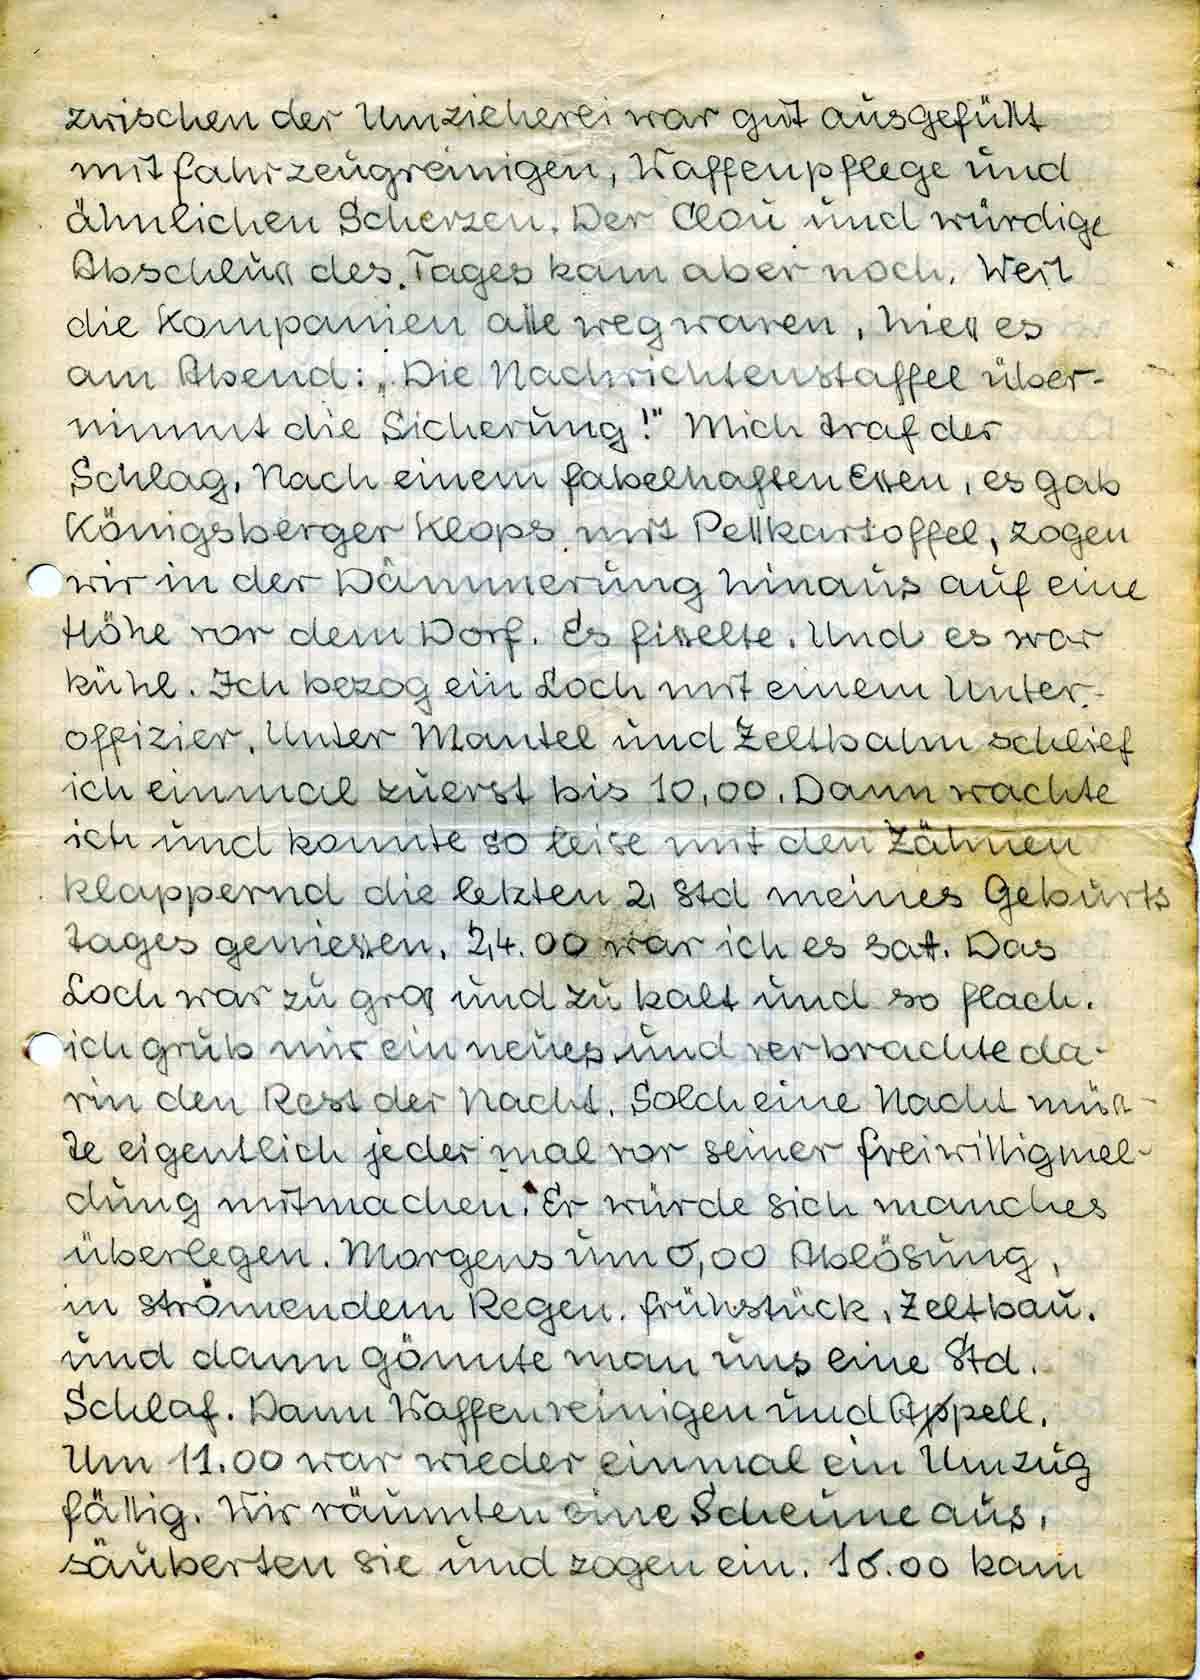 zwischen der Umzieherei war gut ausgefüllt
mit Fahrzeugreinigen, Waffenpflege und
ähnlichen Scherzen. Der Clou und würdige
Abschluß des Tages kam aber noch. Weil
die Kompanien alle weg waren, hieß es
am Abend: „Die Nachrichtenstaffel über-
nimmt die Sicherung!" Mich traf der
Schlag. Nach einem fabelhaften Essen, es gab
Königsberger Klops mit Pellkartoffel, zogen
wir in der Dämmerung hinaus auf eine
Höhe vor dem Dorf. Es fisselte. Und es war
kühl. Ich bezog ein Loch mit einem Unter-
offizier. Unter Mantel und Zeltbahn schlief
ich einmal zuerst bis 10,00. Dann wachte
ich und konnte so leise mit den Zähnen
klappernd die letzten 2 Std meines Geburts
tages genießen. 24.00 war ich es satt. Das
Loch war zu groß und zu kalt und so flach.
ich grub mir ein neues und verbrachte da-
rin den Rest der Nacht. Solch eine Nacht müß-
te eigentlich jeder mal vor seiner Freiwilligmel-
dung mitmachen. Er würde sich manches
überlegen. Morgens um 6,00 Ablösung,
in strömendem Regen. Frühstück, Zeltbau.
und dann gönnte man uns eine Std.
Schlaf. Dann Waffenreinigen und Appell.
Um 11.00 war wieder einmal ein Umzug
fällig. Wir räumten eine Scheune aus,
säuberten sie und zogen ein. 16.00 kam